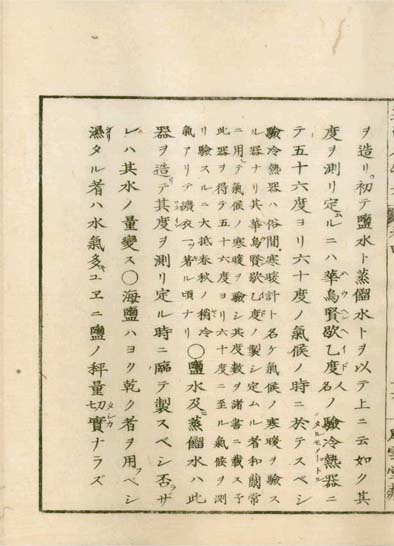 ヲ造リ初テ鹽水ト蒸餾水トヲ以テ上ニ云如ク其
度ヲ測リ定ルニハ華烏賢歇乙度人名ノ驗冷熱器ニ
テ五十六度ヨリ六十度ノ氣候ノ時ニ於テスベシ
驗冷熱器ハ俗間寒暖計ト名ケ氣候ノ寒暖ヲ驗ス
ル器ナリ其華烏賢歇乙度ノ製シ定ムル者和蘭常
ニ用テ氣候ノ寒暖ヲ驗シ其度數ヲ諸書ニ載ス予
此器ヲ得テ五十六度ヨリ六十度ニ至ル氣候ヲ測
リ驗スルニ大抵春秋ノ稍冷
氣アリテ襯衣一ツ著ル頃ナリ〇鹽水及蒸餾水ハ此
器ヲ造テ其度ヲ測リ定ル時ニ臨テ製スベシ否ザ
レハ其水ノ量變ス〇海鹽ハヨク乾ク者ヲ用フベシ
濕タル者ハ水氣多ユヱニ鹽ノ秤量切實ナラズ